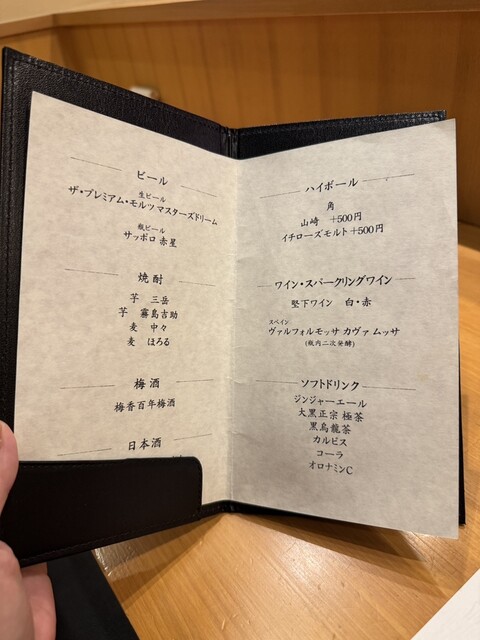 ビール
生ビール
ザ・プレミアム・モルツ マスターズドリーム
瓶ビール
サッポロ 赤星
焼酎
芋 三岳
芋 霧島吉助
麦 中々
麦 ほろる
梅酒
梅香百年梅酒
日本酒
ハイボール
角
山崎 +500円
イチローズモルト+500円
ワイン・スパークリングワイン
堅下ワイン 白・赤
スペイン
ヴァルフォルモッサ カヴァ ムッサ
(瓶内二次発酵)
ソフトドリンク
ジンジャーエール
大黒正宗 極茶
黒烏龍茶
カルピス
コーラ
オロナミンC